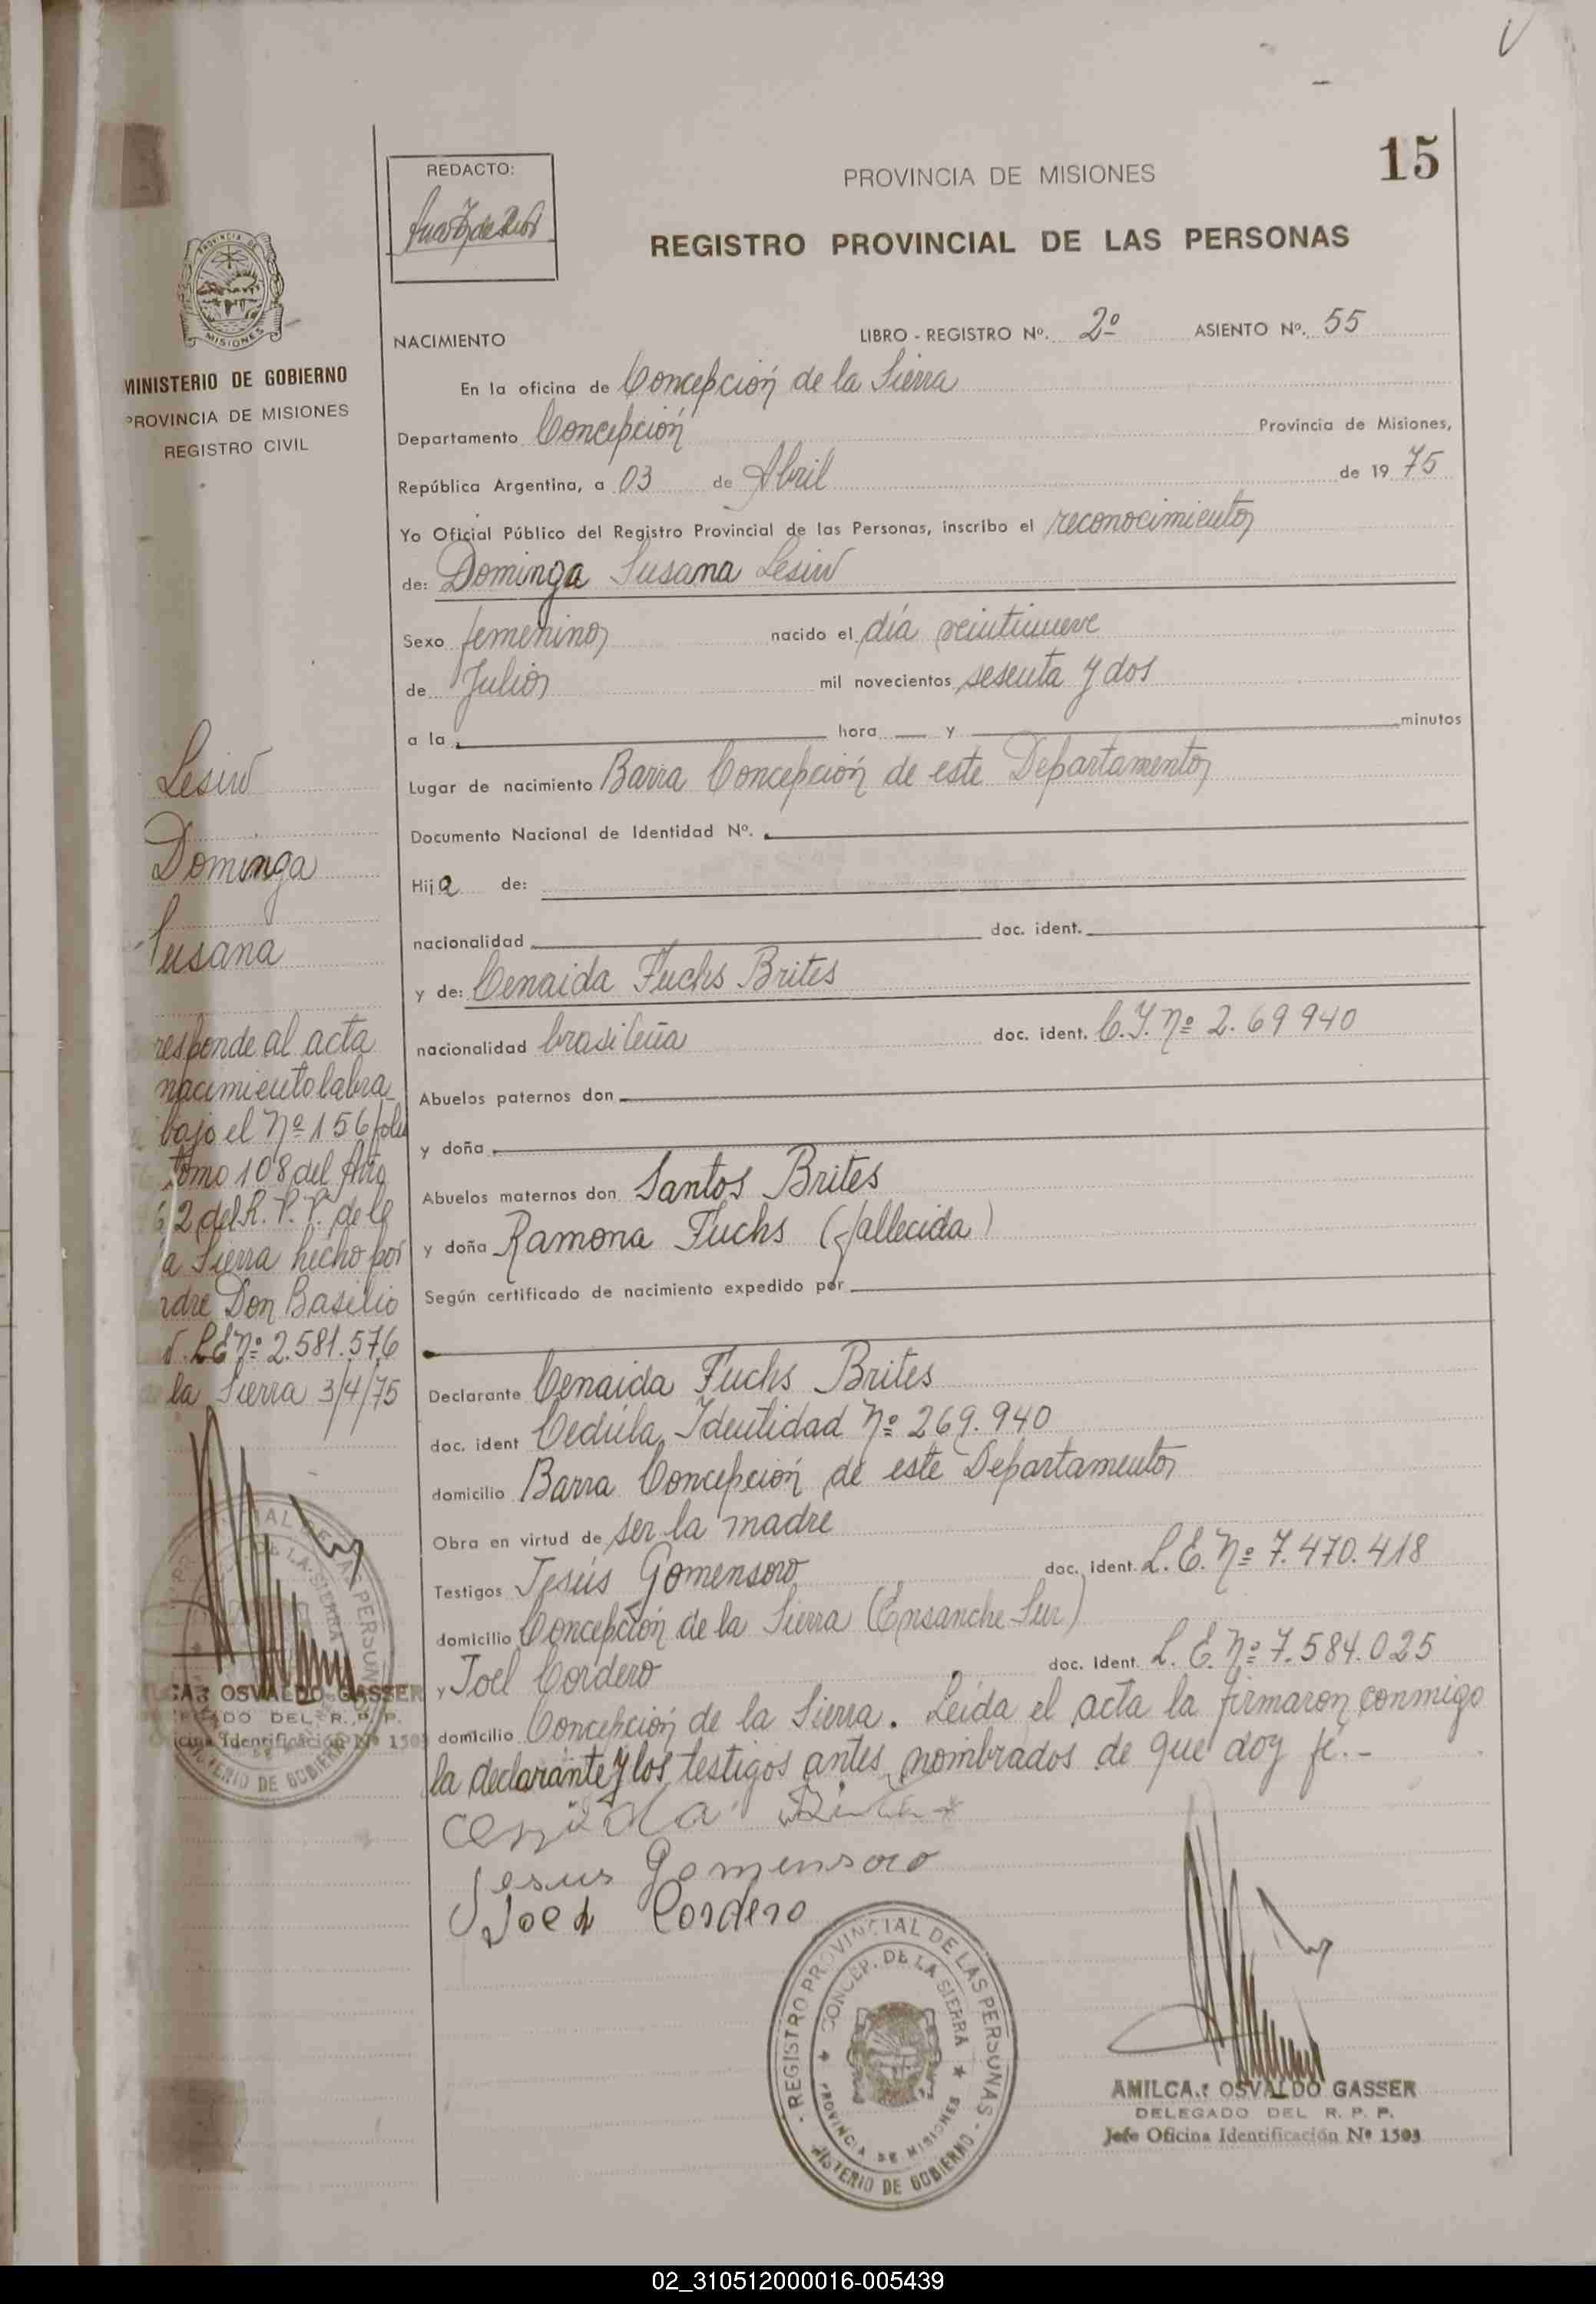 15
REDACTO:
PROVINCIA DE MISIONES
REGISTRO PROVINCIAL DE LAS PERSONAS
PROVINCIA DE
MISIONES
MINISTERIO DE GOBIERNO
PROVINCIA DE MISIONES
REGISTRO CIVIL
NACIMIENTO LIBRO - REGISTRO Nº. 2º ASIENTO Nº. 55
En la oficina de Concepción de la Sierra
Departamento Concepción Provincia de Misiones,
República Argentina, a 03 de Abril de 19 75
Yo Oficial Público del Registro Provincial de las Personas, inscribo el reconocimiento
de: Dominga Susana Lesiw
Sexo femenino nacido el día veintinueve
de Julio mil novecientos sesenta y dos
a la hora y minutos
Lugar de nacimiento Barra Concepción de este Departamento
Documento Nacional de Identidad Nº.
Hija de:
nacionalidad doc. ident.
y de: Cenaida Fuchs Brites
nacionalidad brasileña doc. ident. C.I. Nº 2.69 940
Abuelos paternos don
y doña
Abuelos maternos don Santos Brites
y doña Ramona Fuchs (fallecida)
Según certificado de nacimiento expedido por
Declarante Cenaida Fuchs Brites
doc. ident Cedúla Identidad Nº 269.940
domicilio Barra Concepción de este Departamento
Obra en virtud de ser la madre
Testigos Jesús Gomensoro doc. ident. L.E. Nº 7.470.418
domicilio Concepción de la Sierra (Ensanche Sur)
y Joel Cordero doc. Ident. L.E. Nº 7.584.025
domicilio Concepción de la Sierra. Leída el acta la firmaron conmigo
la declarante y los testigos antes nombrados de que doy fé.-
Jesus Gomensoro
Joel Cordero
Lesiw
Dominga
Susana
responde al acta
nacimiento labra
bajo el Nº 156 folio
tomo 108 del Año
62 del R. P. P. de
la Sierra hecho por
adre Don Basilio
LE Nº 2.581.576
de la Sierra 3/4/75
OSVALDO GASSER
DEL R. P. P.
Oficina Identificación Nº 1503
REGISTRO PROVINCIAL DE LAS PERSONAS
CONCEP. DE LA SIERRA
PROVINCIA DE MISIONES
MINISTERIO DE GOBIERNO
AMILCAR OSVALDO GASSER
DELEGADO DEL R. P. P.
Jefe Oficina Identificación Nº 1503
02_310512000016-005439